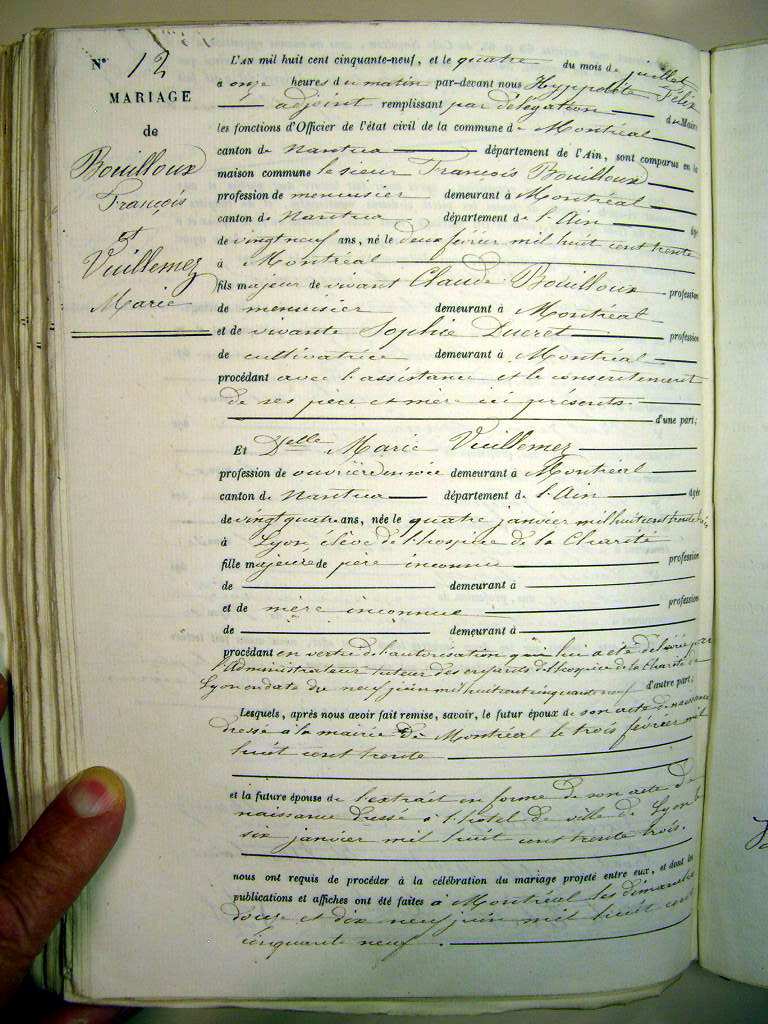 N° 12
MARIAGE
de
Bouilloux
François
et
Vuillemez
Marie
L'AN mil huit cent cinquante-neuf, et le quatre du mois de juillet
à onze heures du matin par-devant nous Hyppolite Félix
adjoint remplissant par délégation du Maire
les fonctions d'Officier de l'état civil de la commune de Montréal
canton de Nantua département de l'Ain, sont comparus en la
maison commune le sieur François Bouilloux
profession de menuisier demeurant à Montréal
canton de Nantua département de l'Ain âgé
de vingt neuf ans, né le deux février mil huit cent trente
à Montréal
fils majeur de vivant Claude Bouilloux profession
de menuisier demeurant à Montréal
et de vivante Sophie Ducret profession
de cultivatrice demeurant à Montréal
procédant avec l'assistance et le consentement
de ses père et mère ici présents.
d'une part;
Et Delle Marie Vuillemez
profession de ouvrière en soie demeurant à Montréal
canton de Nantua département de l'Ain âgée
de vingt quatre ans, née le quatre janvier mil huit cent trente
à Lyon, élève de l'hospice de la Charité
fille majeure de père inconnu profession
de demeurant à
et de mère inconnue profession
de demeurant à
procédant en vertu de l'autorisation qui lui a été délivrée par
l'Administrateur tuteur des enfants de l'hospice de la Charité de
Lyon en date du neuf juin mil huit cent cinquante neuf d'autre part;
Lesquels, après nous avoir fait remise, savoir, le futur époux de son acte de naissance
dressé à la mairie de Montréal le trois février mil
huit cent trente
et la future épouse de l'extrait en forme de son acte de
naissance dressé à l'hôtel de ville de Lyon le
six janvier mil huit cent trente trois.
nous ont requis de procéder à la célébration du mariage projeté entre eux, et dont les
publications et affiches ont été faites à Montréal les dimanches
douze et dix neuf juin mil huit cent
cinquante neuf.